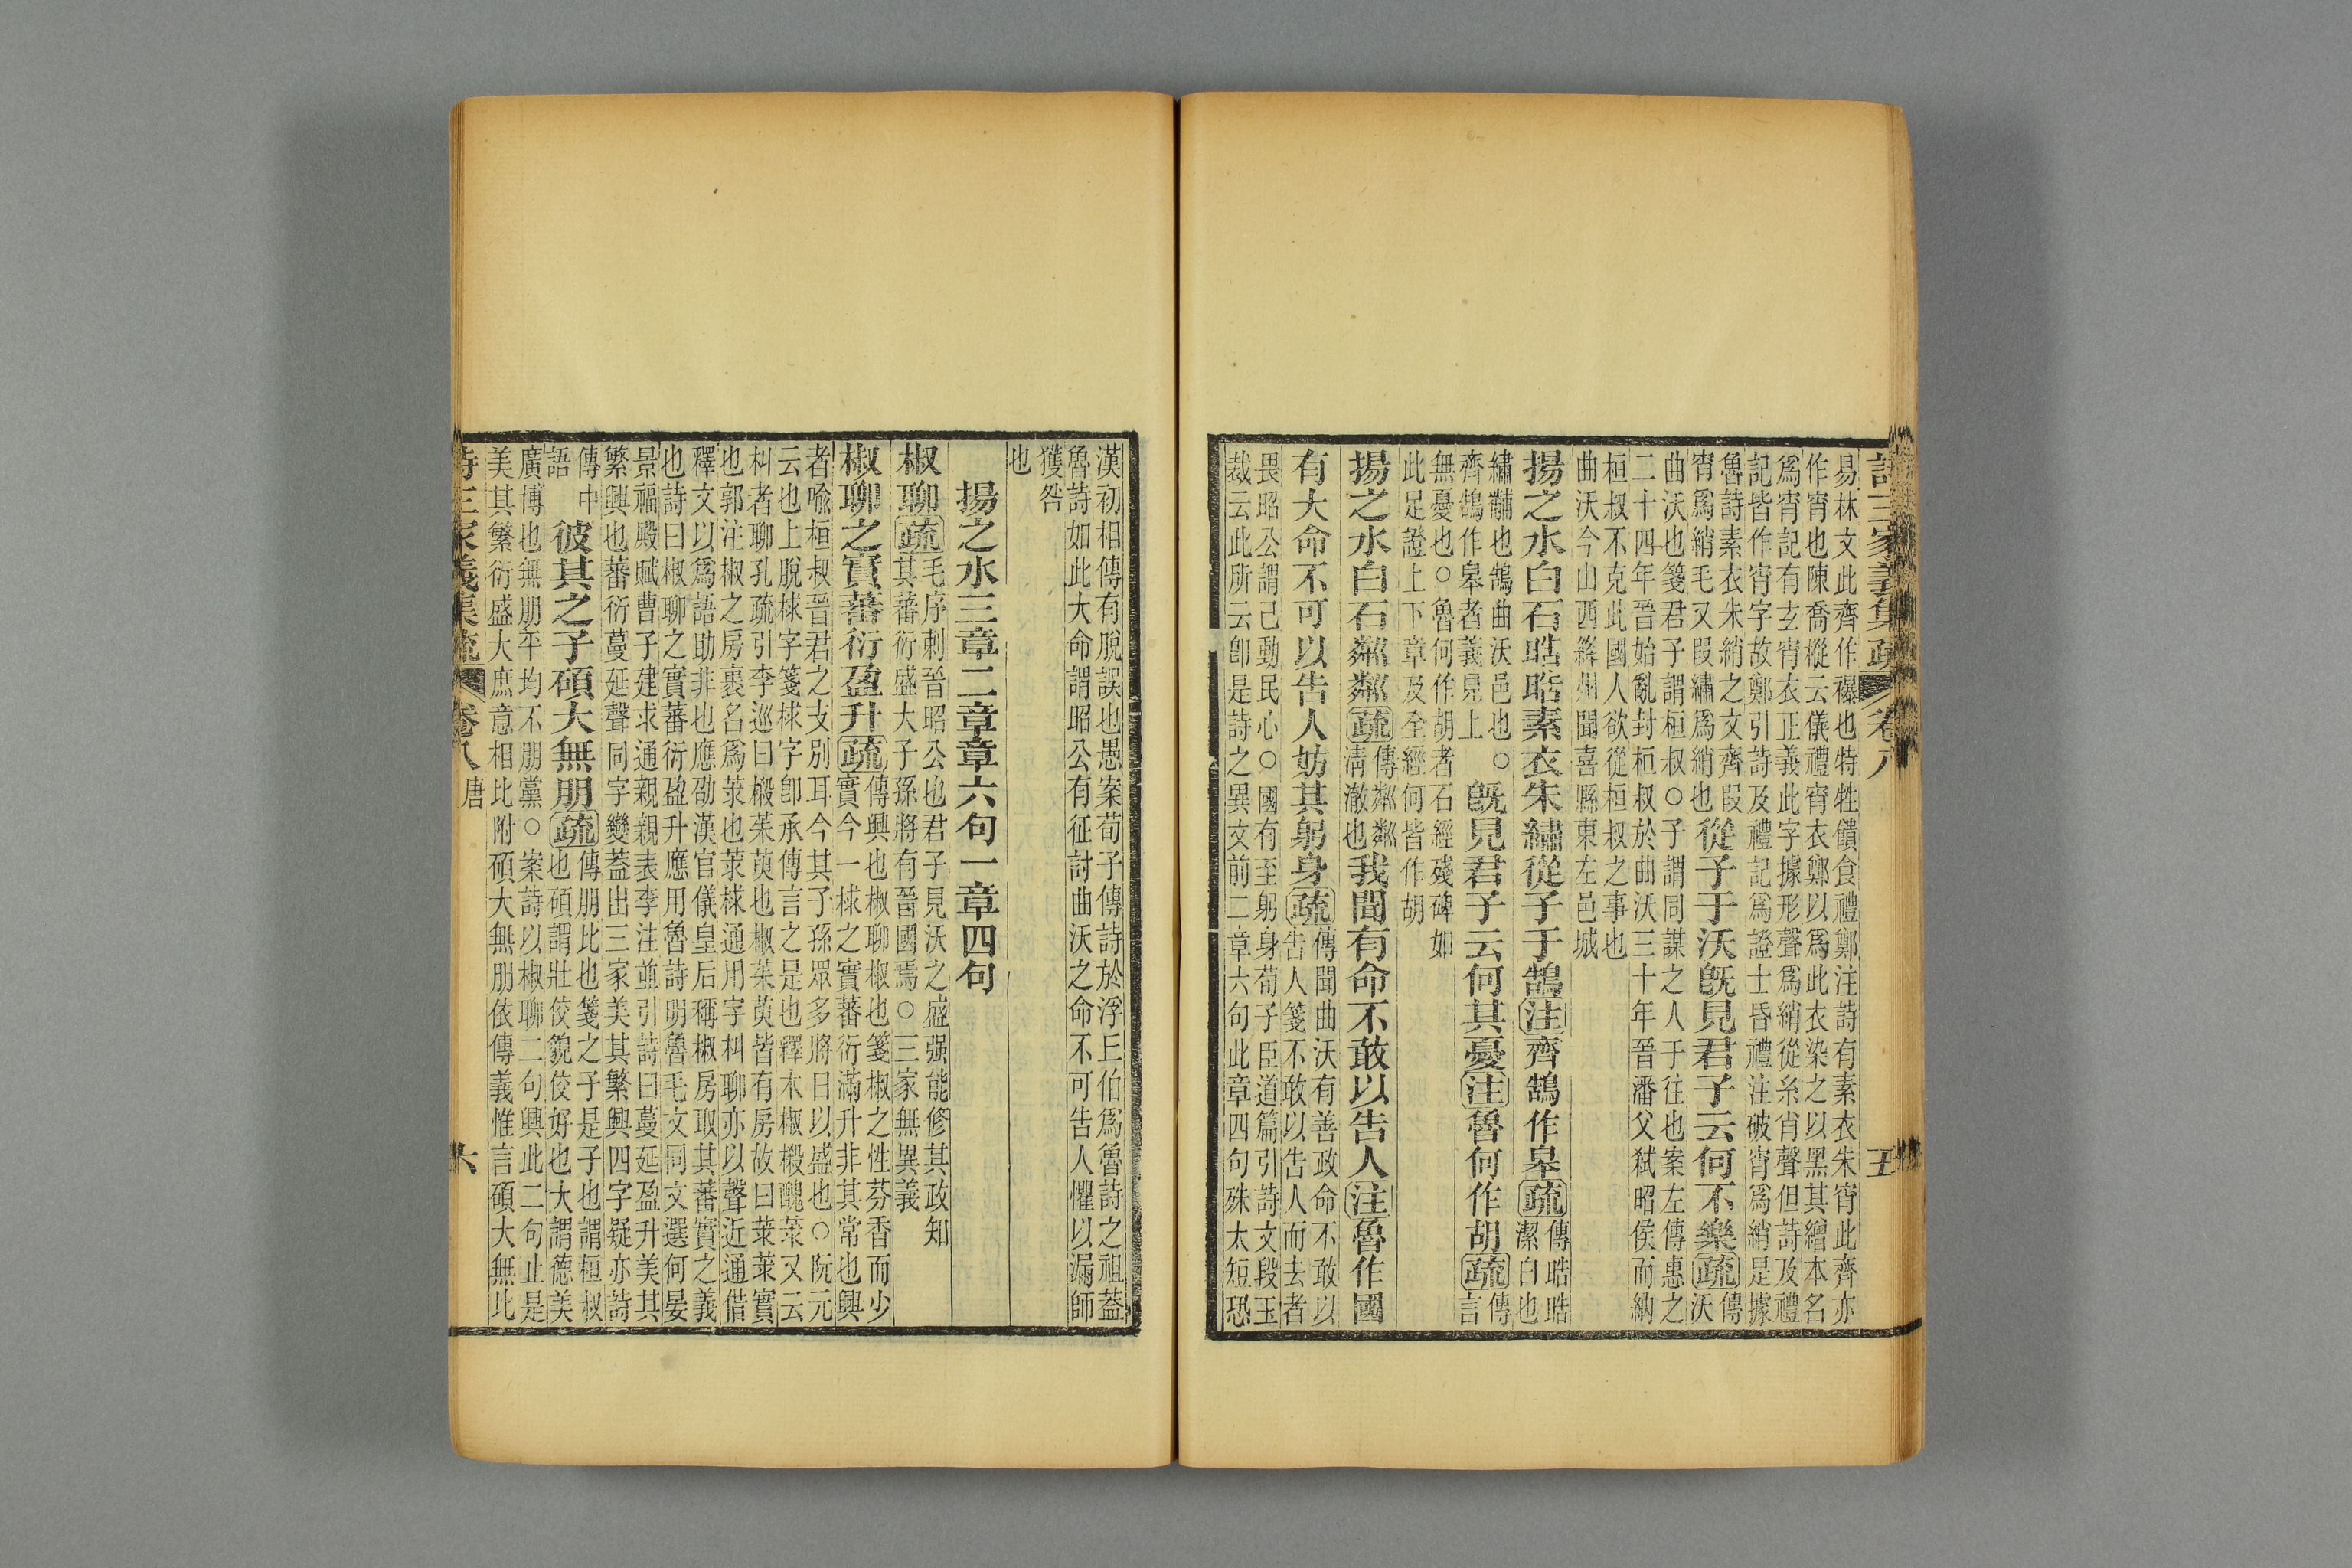 詩三家義集疏 卷八 五
易林文此齊作襮也特牲饋食禮鄭注詩有素衣朱宵此齊亦
作宵也陳喬樅云儀禮宵衣鄭以爲此衣染之以黑其繒本名
爲宵記有玄宵衣正義此字據形聲爲綃從糸肖聲但詩及禮
記皆作宵字故鄭引詩及禮記爲證士昏禮注破宵爲綃是據
魯詩素衣朱綃之文齊叚
宵爲綃毛又叚繡爲綃也
從子于沃旣見君子云何不樂疏傳
沃
曲沃也箋君子謂桓叔○子謂同謀之人于往也案左傳惠之
二十四年晉始亂封桓叔於曲沃三十年晉潘父弑昭侯而納
桓叔不克此國人欲從桓叔之事也
曲沃今山西絳州聞喜縣東左邑城
揚之水白石晧晧素衣朱繡從子于鵠注齊鵠作皋疏傳晧晧
潔白也
繡黼也鵠曲沃邑也○
齊鵠作皋者義見上
旣見君子云何其憂注魯何作胡疏傳
言
無憂也○魯何作胡者石經殘碑如
此足證上下章及全經何皆作胡
揚之水白石粼粼疏傳粼粼
清澈也
我聞有命不敢以告人注魯作國
有大命不可以告人妨其躬身疏傳聞曲沃有善政命不敢以
告人箋不敢以告人而去者
畏昭公謂己動民心○國有至躬身荀子臣道篇引詩文段玉
裁云此所云卽是詩之異文前二章六句此章四句殊太短恐
漢初相傳有脫誤也愚案荀子傳詩於浮丘伯爲魯詩之祖蓋
魯詩如此大命謂昭公有征討曲沃之命不可告人懼以漏師
獲咎
也
揚之水三章二章章六句一章四句
椒聊疏毛序刺晉昭公也君子見沃之盛强能修其政知
其蕃衍盛大子孫將有晉國焉○三家無異義
椒聊之實蕃衍盈升疏傳興也椒聊椒也箋椒之性芬香而少
實今一梂之實蕃衍滿升非其常也興
者喻桓叔晉君之支別耳今其子孫眾多將日以盛也○阮元
云也上脫梂字箋梂字卽承傳言之是也釋木椒樧醜莍又云
朻者聊孔疏引李巡曰樧茱萸也椒茱萸皆有房故曰莍莍實
也郭注椒之房裹名爲莍也莍梂通用字朻聊亦以聲近通借
釋文以爲語助非也應劭漢官儀皇后稱椒房取其蕃實之義
也詩曰椒聊之實蕃衍盈升應用魯詩明魯毛文同文選何晏
景福殿賦曹子建求通親親表李注並引詩曰蔓延盈升美其
繁興也蕃衍蔓延聲同字變蓋出三家美其繁興四字疑亦詩
傳中
語
彼其之子碩大無朋疏傳朋比也箋之子是子也謂桓叔
也碩謂壯佼貌佼好也大謂德美
廣博也無朋平均不朋黨○案詩以椒聊二句興此二句止是
美其繁衍盛大庶意相比附碩大無朋依傳義惟言碩大無比
詩三家義集疏 卷八 唐 六